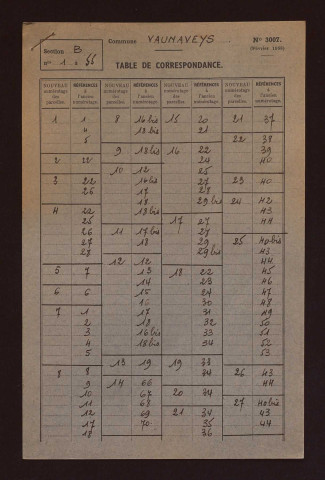 Commune VAUNAVEYS
N° 3007.
Section B
n° 1 à 55
TABLE DE CORRESPONDANCE.
NOUVEAU numérotage des parcelles. RÉFÉRENCES à l'ancien numérotage. NOUVEAU numérotage des parcelles. RÉFÉRENCES à l'ancien numérotage. NOUVEAU numérotage des parcelles. RÉFÉRENCES à l'ancien numérotage. NOUVEAU numérotage des parcelles. RÉFÉRENCES à l'ancien numérotage.
1 1
4
5
2 22
3 22
26
4 22
25
26
27
28
5 7
6 6
7 1
2
3
4
5
8 8
9
10
11
12
17
18
8 16bis
18bis
9 18bis
10 12
16bis
17
18
18bis
11 17bis
18
12 12
13
14
15
16
17
18
16bis
18bis
13 19
14 66
67
68
69
70
15 20
21
16 22
24
25
27
28
29bis
17 27
27
29
29bis
18 22
23
24
30
31
32
33
34
19 33
34
20 34
21 34
35
36
21 37
22 38
39
40
23 40
24 42
43
44
25 40bis
43
44
45
46
47
48
49
50
51
52
53
26 43
44
27 40bis
43
44